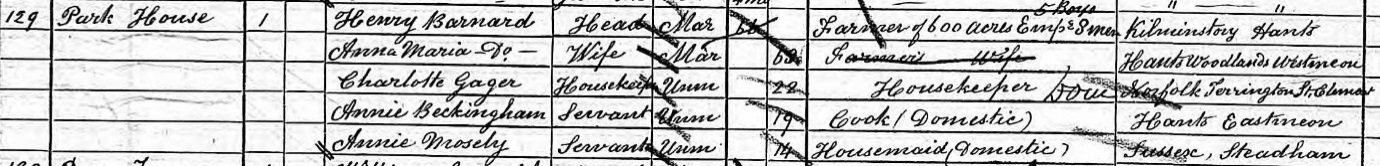 5 Boys " "
129 Park House 1 Henry Barnard Head Mar Farmer of 600 acres Emps 8 men Kilminstory Hants
Anna Maria Do Wife Mar 63 Farmer's Wife Hants Woodlands Westmeon
Charlotte Gager Housekeeper Unm 28 Housekeeper Dom Norfolk Terrington St Clement
Annie Beckingham Servant Unm 19 Cook (Domestic) Hants Eastmeon
Annie Mosely Servant Unm 14 Housemaid (Domestic) Sussex, Steadham